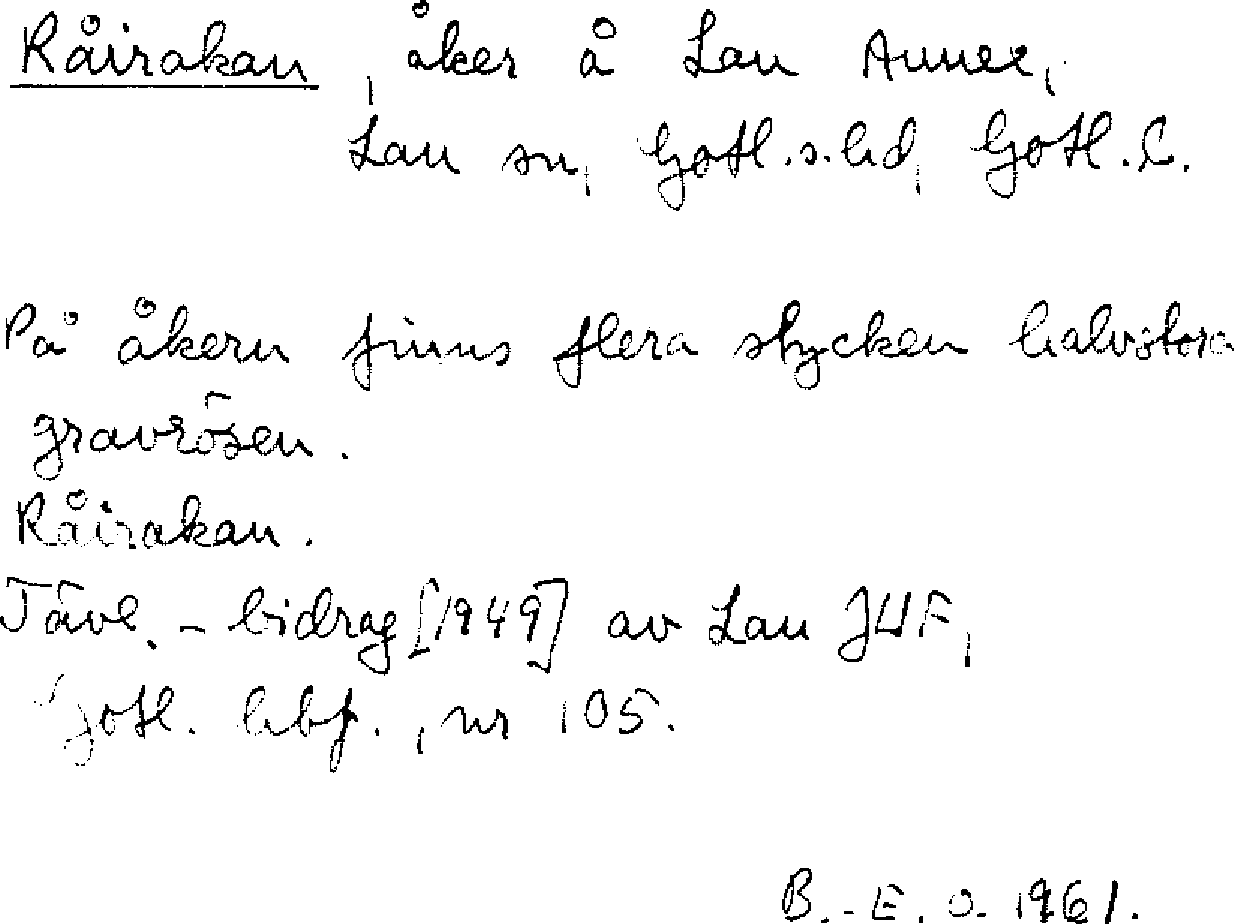 Råirakan, åker å Lau Annex,
Lau sn, Gotl.s.hd, Gotl.l.
På åkern finns flera stycken halvstora
gravrösen.
Råirakan.
Tävl.-bidrag [1949] av Lau JUF,
Gotl. hbf., nr 105.
B.-E. O. 1961.